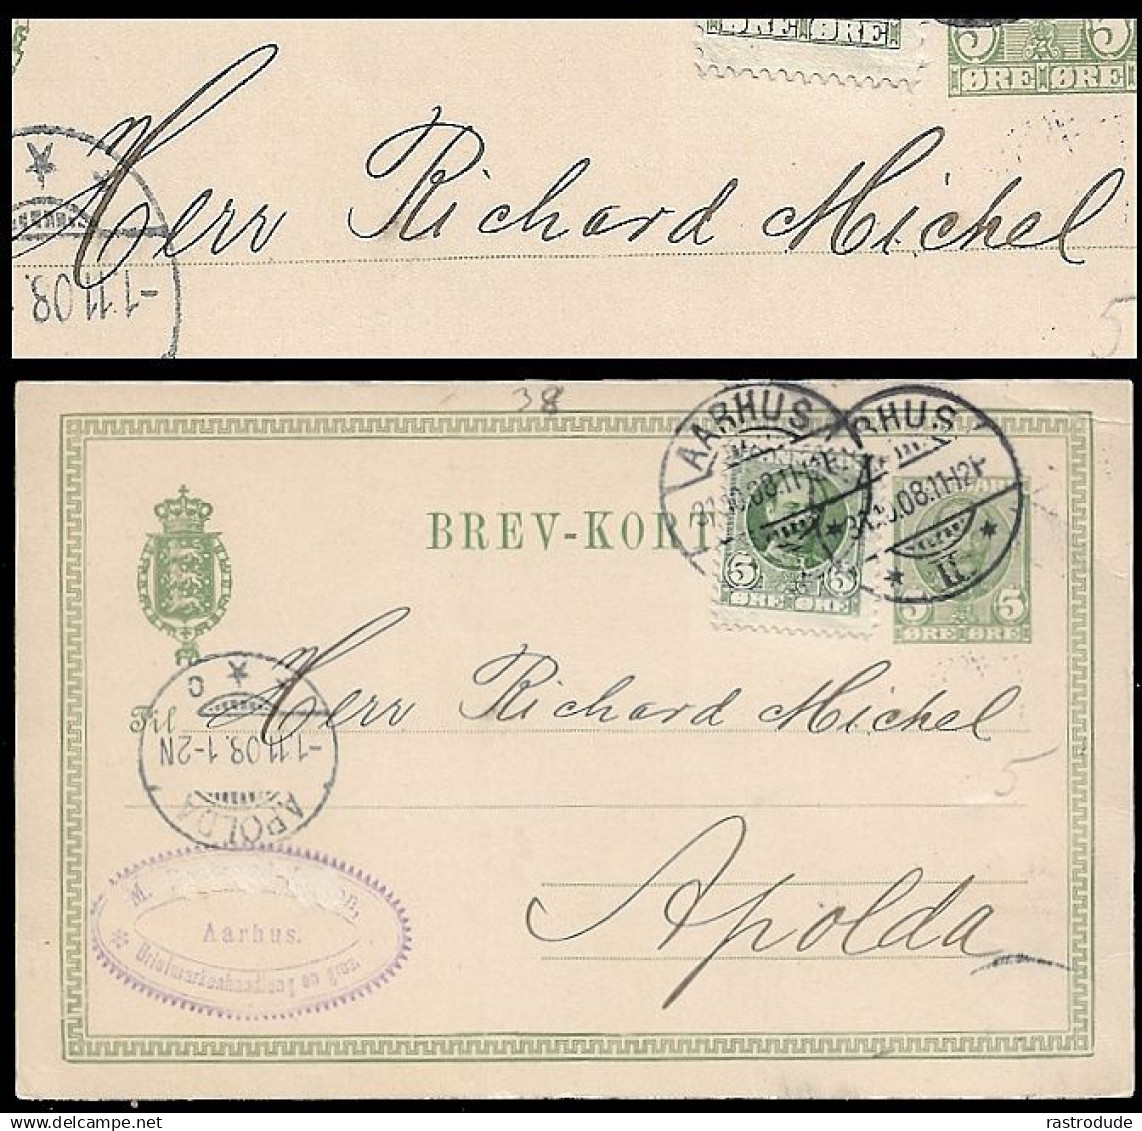 ØRE ØRE
5 5
ØRE ØRE
Herr Richard Michel
-1.11.08.
5
38
AARHUS
31.10.08.11-12F
AARHUS
31.10.08.11-12F
II
BREV-KORT
5 5
ØRE ØRE
5 5
ØRE ØRE
Til Herr Richard Michel
C
-1.11.08.1-2N
APOLDA
5
Apolda
M.
Aarhus.
Briefmarkenhandlung en gros.
rastrodude